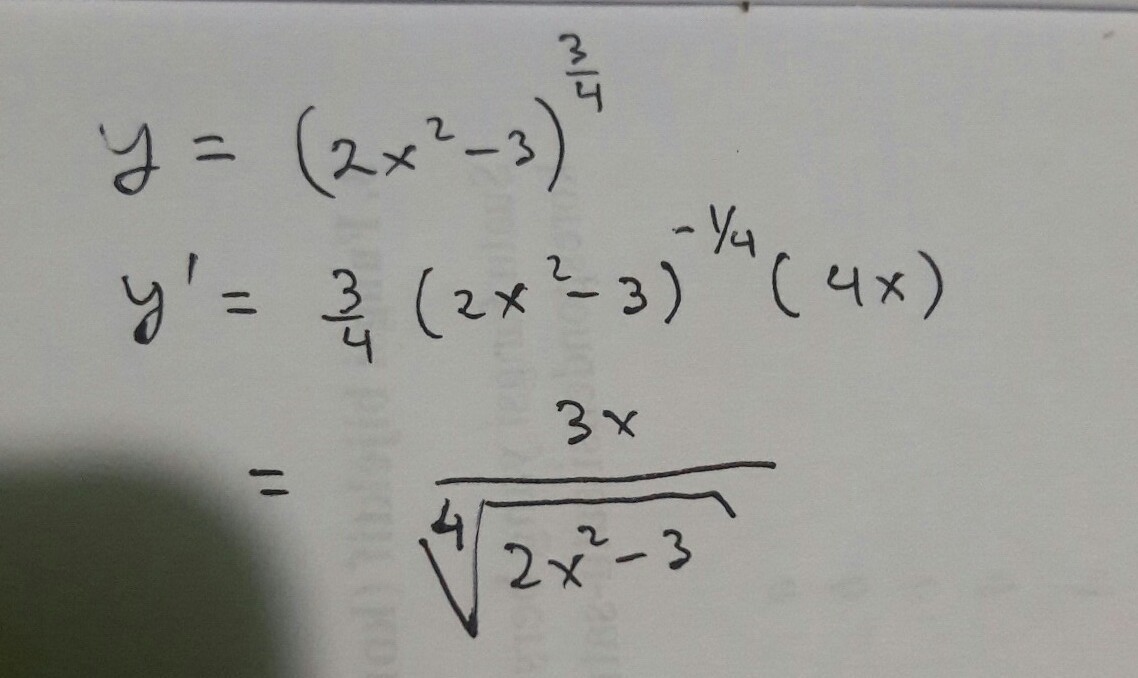 y = (2x² - 3)^(3/4)
y' = 3/4 (2x² - 3)^(-1/4) (4x)
= 3x / ∜(2x² - 3)